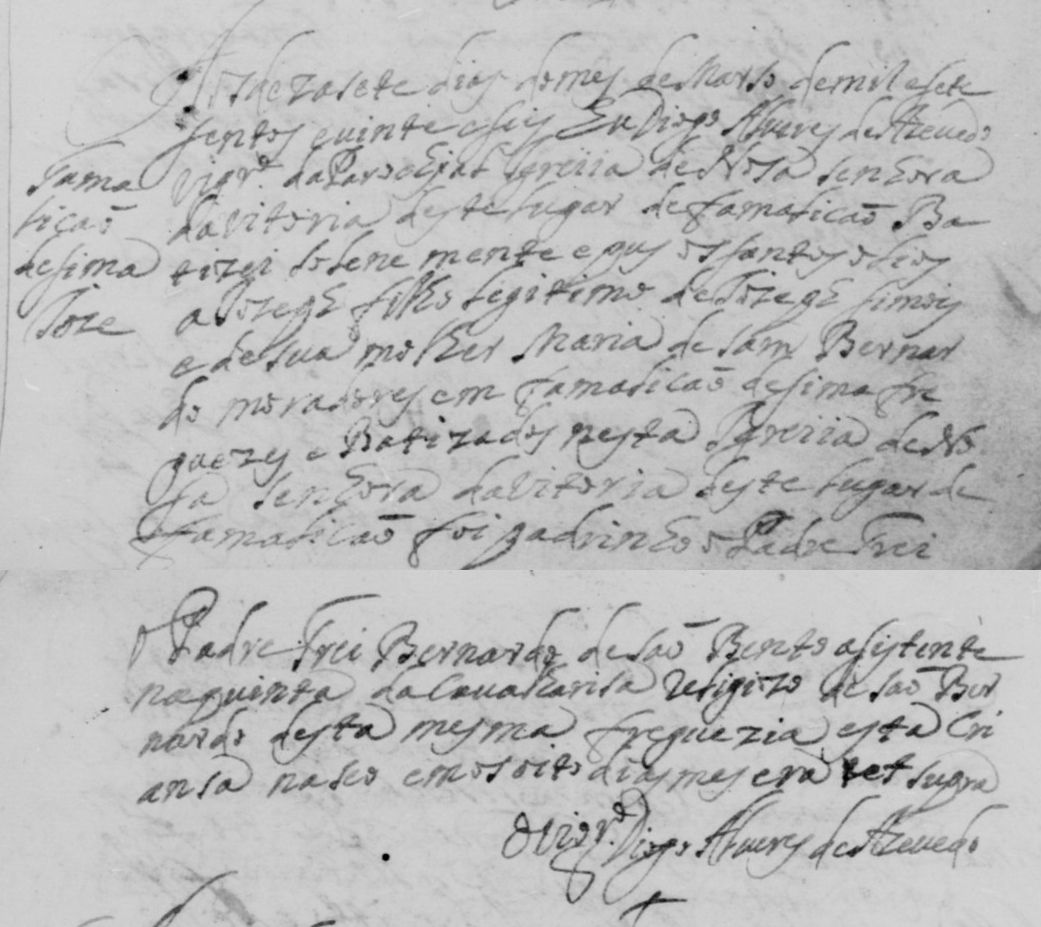 Aos dezasete dias do mes de Marso de mil e sete
sentos e uinte e seis Eu Diogo Alueres de Azeuedo
Vigr.º da Parochjal Igreiia de Nosa senhora
da Vitoria deste lugar de famalicaõ Ba
tizei solene mente e pus os santos olios
a Jozeph filho legitimo de Jozeph simois
e de sua molher Maria de sam Bernar
do moradores em famalicaõ de sima fre
guezes e Batizados nesta Igreiia de No
sa senhora da Vitoria deste lugar de
famalicaõ foi padrinho o Padre Frei
Fama
licaõ
de sima
Joze
o Padre Frei Bernardo de saõ Bento asistente
na quinta da Caualharisa religiozo de saõ Ber
nardo desta mesma freguezia esta Cri
ansa nasco em os oito dias mes era ut supra
O Vigr.º Diogo Alueres de Azeuedo